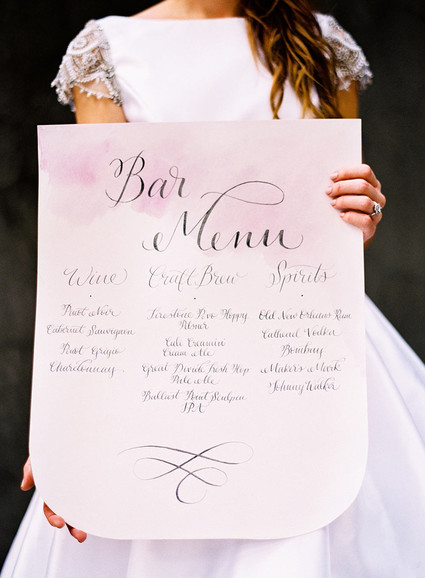 Bar
Menu
Wine
Pinot Noir
Cabernet Sauvignon
Pinot Grigio
Chardonnay
Craft Brew
Firestone Pivo Hoppy
Pilsner
Cali Creamin
Cream Ale
Great Divide Fresh Hop
Pale Ale
Ballast Point Sculpin
IPA
Spirits
Old New Orleans Rum
Cathead Vodka
Bombay
Maker's Mark
Johnny Walker